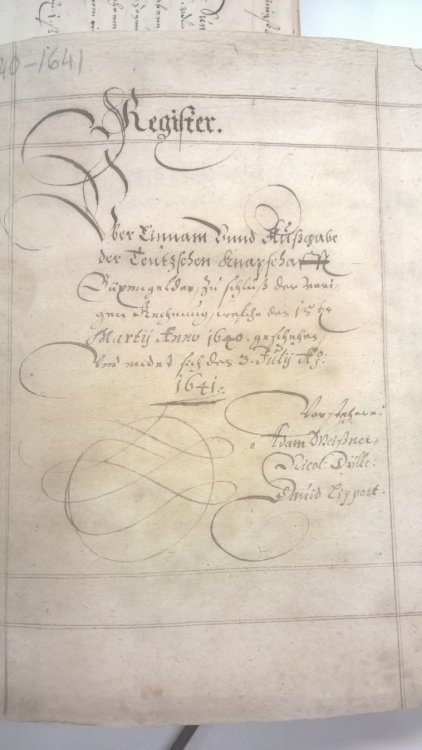 40-1641
Register.
Über Einnam Vnnd Außgabe
der Teutzschen Knapschafft
Büxengelder, zu schluß der vori-
gen Rechnung, welche des 15 ...
Martij Anno 1640. geschehen,
Vnd endet sich des 3. Julij Aõ:
1641:
Vorstehere:
Adam Meißner.
Nicol: Dÿlle:
David Lippert.